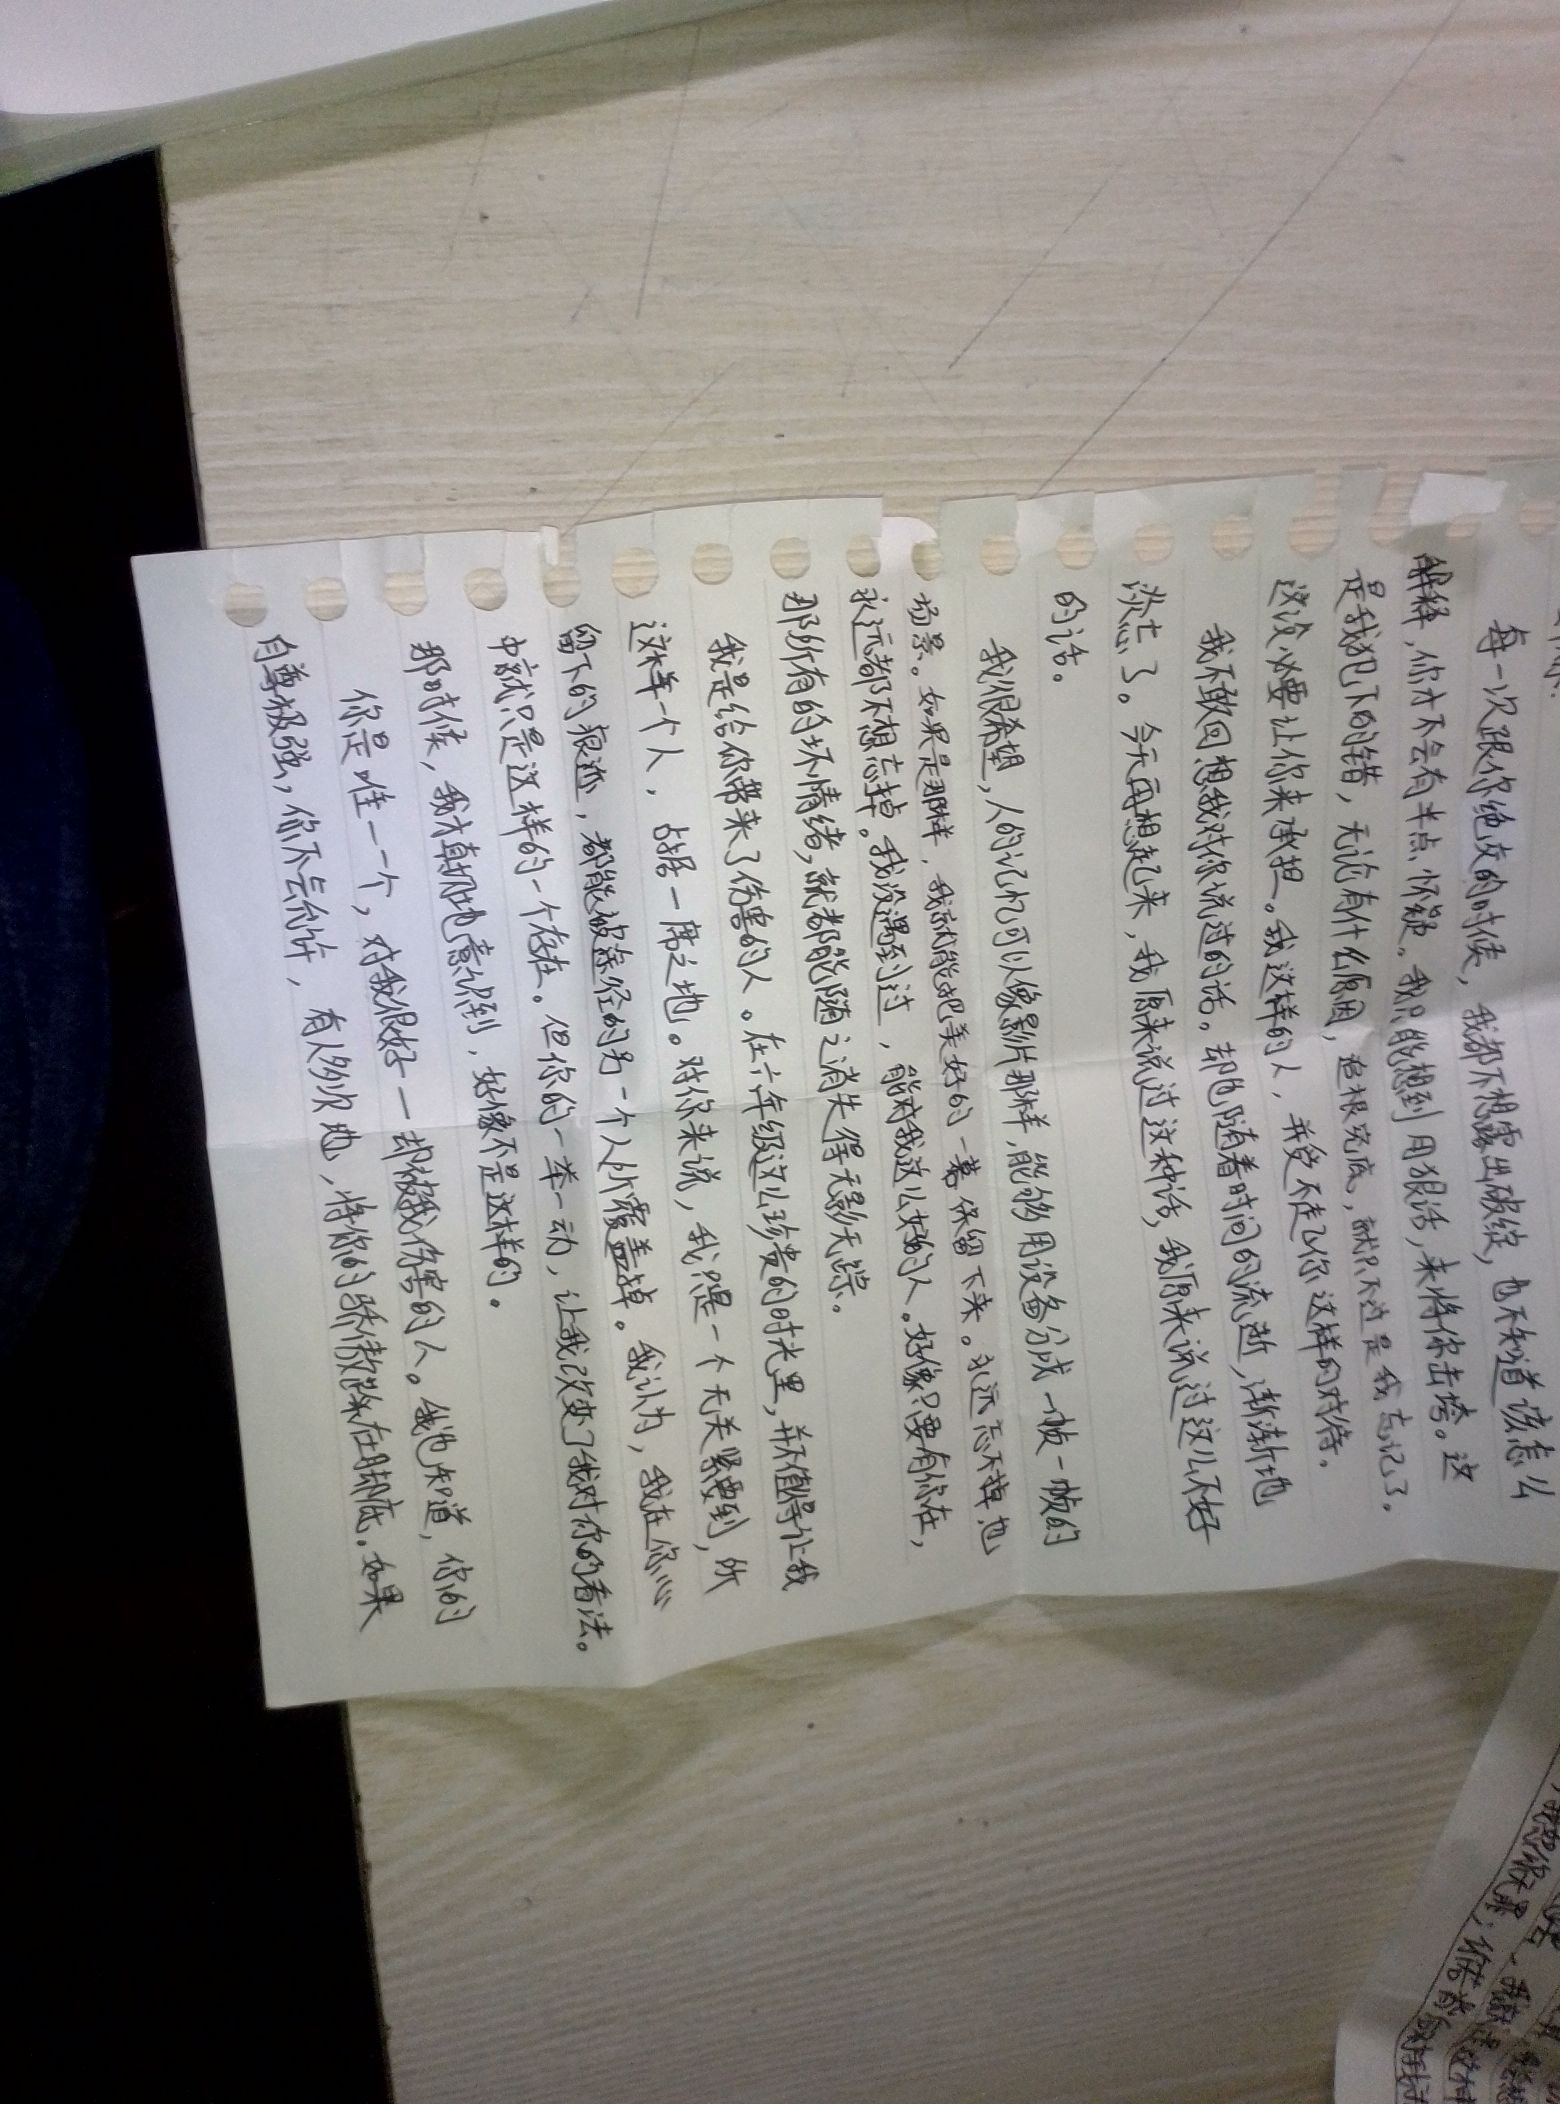 每一次跟你绝交的时候，我都不想露出破绽，也不知道该怎么
解释，你才不会有半点怀疑。我只能想到用狠话，来将你击垮。这
是我犯下的错，无论有什么原因，追根究底，就只不过是我忘记了。
这没必要让你来承担。我这样的人，并受不起你这样的对待。
我不敢回想我对你说过的话。却也随着时间的流逝，渐渐地
淡忘了。今天再想起来，我原来说过这种话，我原来说过这么不好
的话。
我很希望，人的记忆可以像影片那样，能够用设备分成一帧一帧的
场景。如果是那样，我就能把美好的一幕保留下来。永远忘不掉也
永远都不想忘掉。我没遇到过，能对我这么好的人。好像只要有你在，
那所有的坏情绪，就都能随之消失得无影无踪。
我是给你带来了伤害的人。在六年级这么珍贵的时光里，并不值得让我
这样一个人，占据一席之地。对你来说，我只是一个无关紧要到，所
留下的痕迹，都能被途径的另一个人所覆盖掉。我认为，我在你心
中就只是这样的一个存在。但你的一举一动，让我改变了我对你的看法。
那时候，我才真切地意识到，好像不是这样的。
你是唯一一个，对我很好一却被我伤害的人。我也知道，你的
自尊极强，你不会允许，有人多次地，将你的骄傲踩在脚底。如果